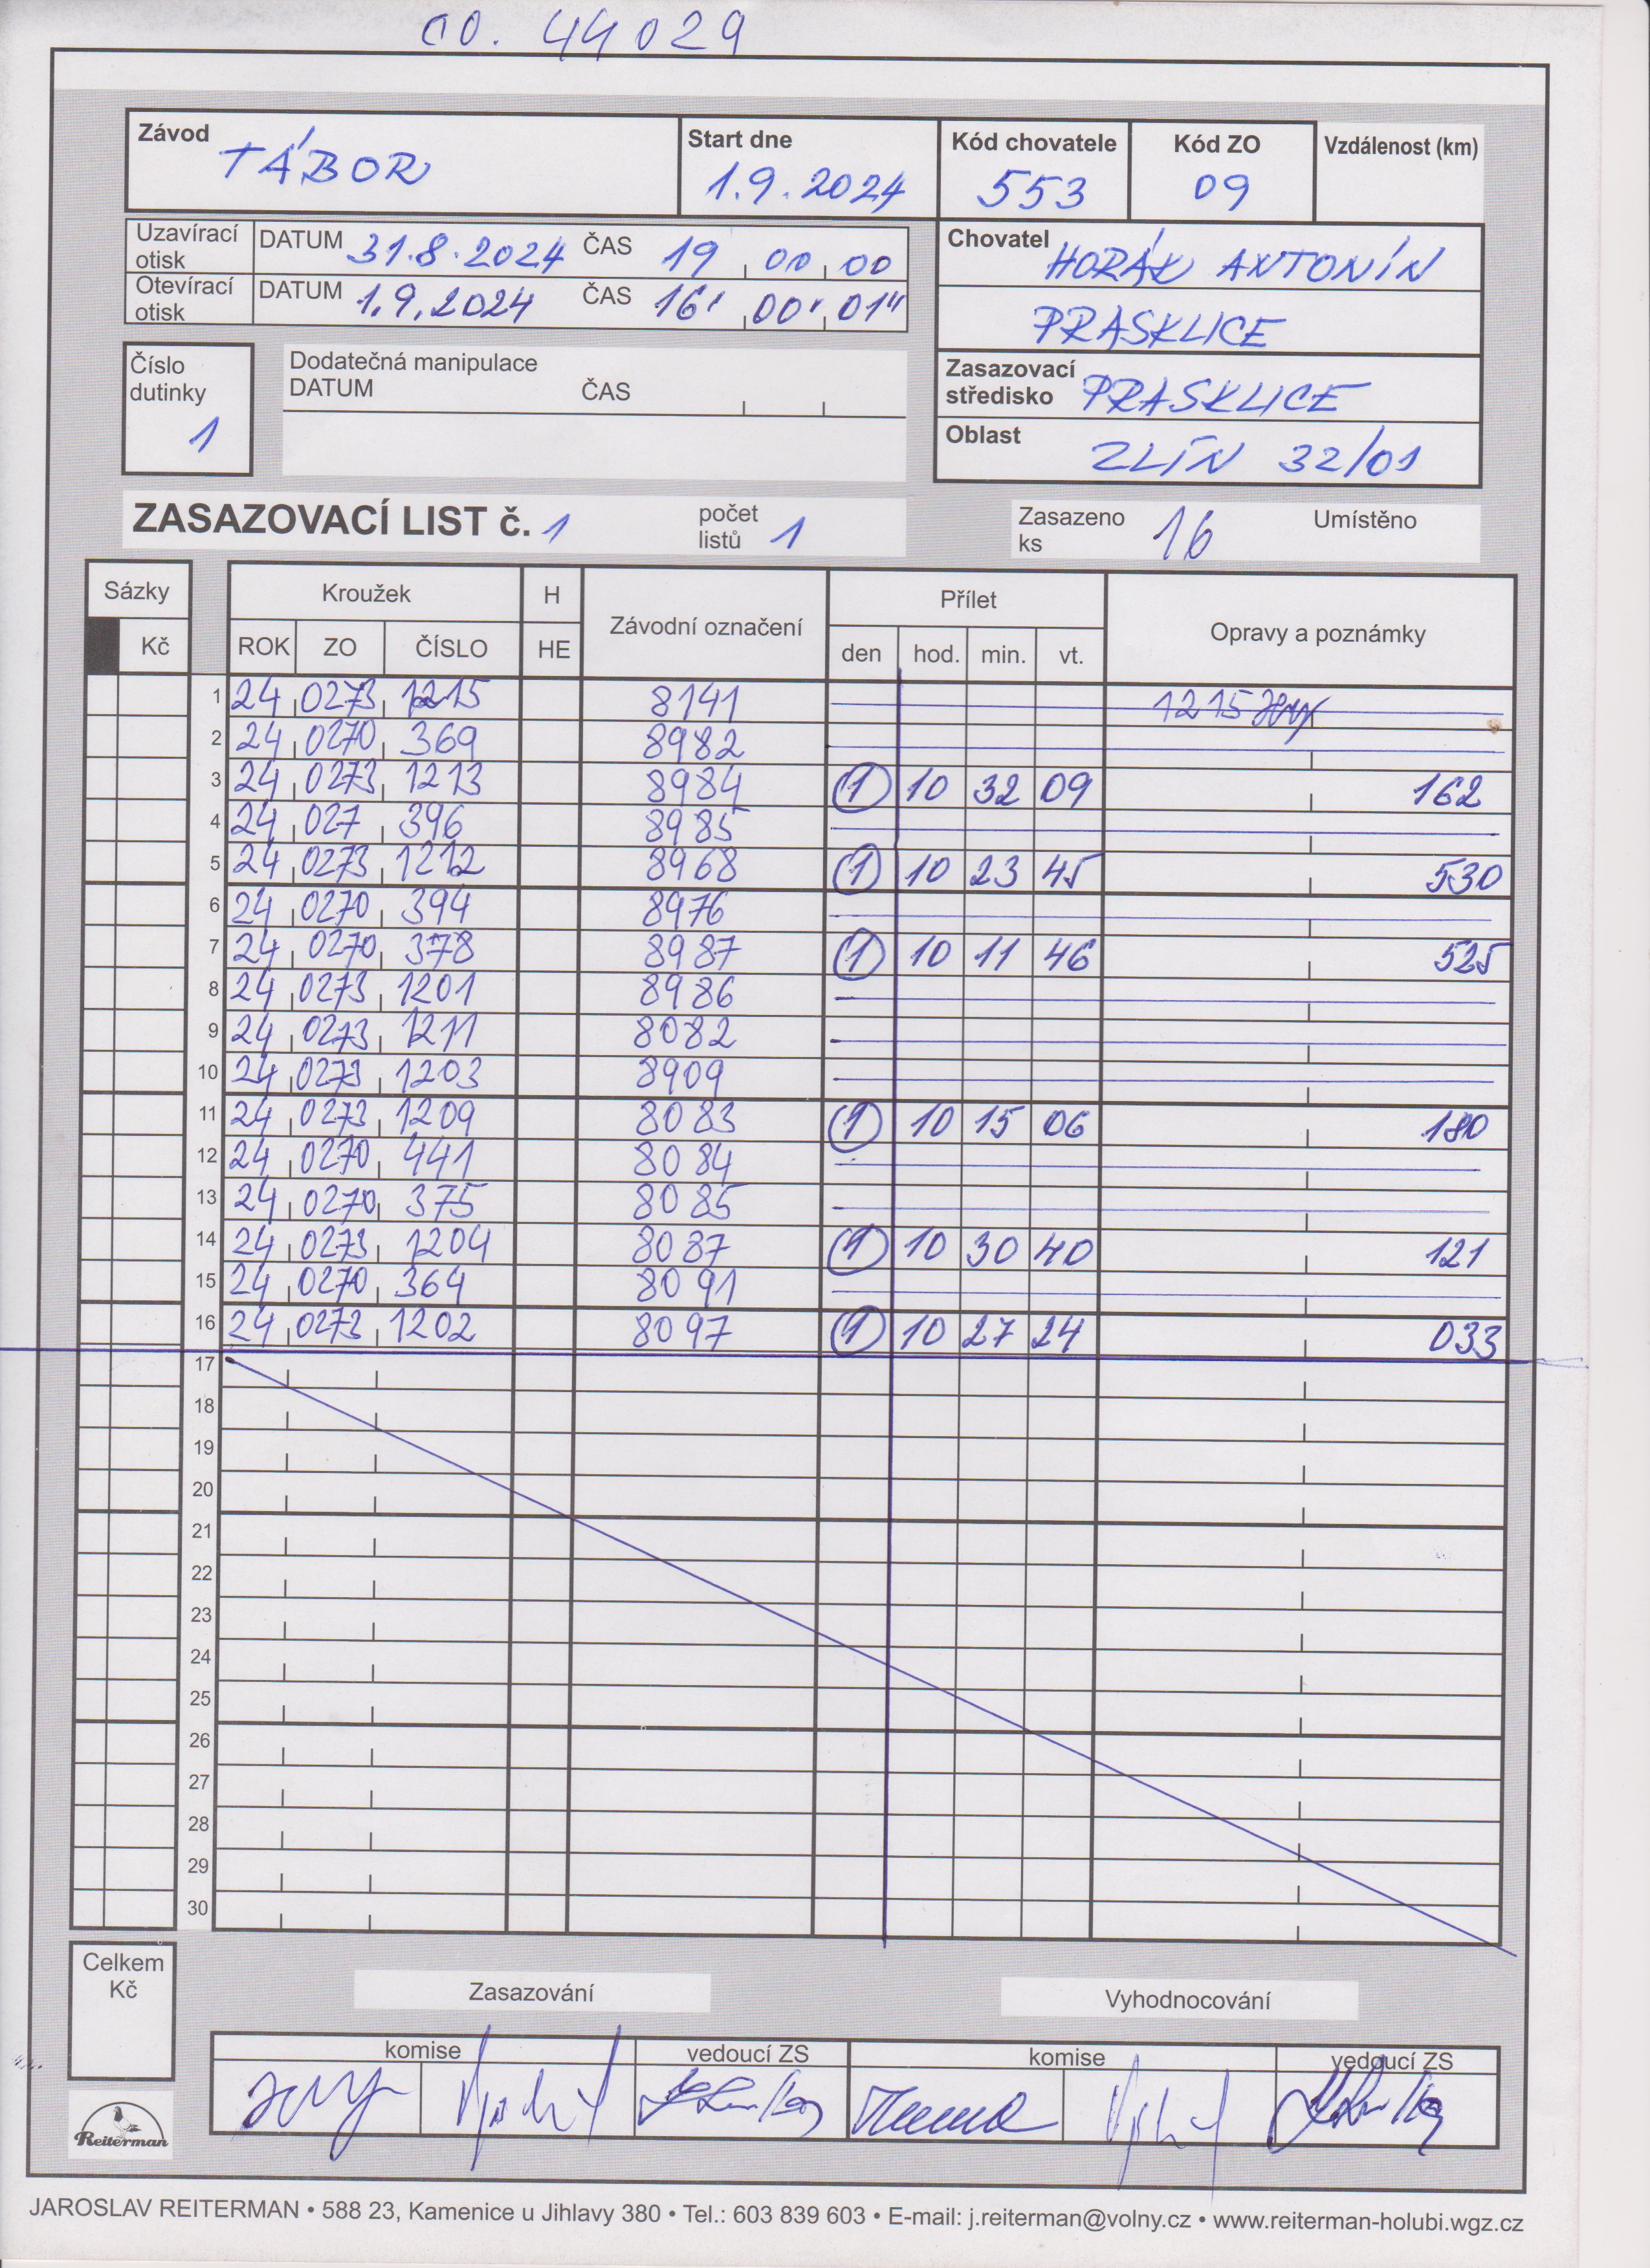 č.o. 44029
Závod TÁBOR Start dne 1.9.2024 Kód chovatele 553 Kód ZO 09 Vzdálenost (km)
Uzavírací otisk DATUM 31.8.2024 ČAS 19 00 00
Otevírací otisk DATUM 1.9.2024 ČAS 16' 00' 01"
Chovatel HORÁK ANTONÍN
PRASKLICE
Číslo dutinky 1
Dodatečná manipulace
DATUM ČAS
Zasazovací středisko PRASKLICE
Oblast ZLÍN 32/01
ZASAZOVACÍ LIST č. 1 počet listů 1 Zasazeno ks 16 Umístěno
Sázky Kroužek H Závodní označení Přílet Opravy a poznámky
Kč ROK ZO ČÍSLO HE den hod. min. vt.
1 24 0273 1215 8141 1215
2 24 0270 369 8982
3 24 0273 1213 8984 1 10 32 09 162
4 24 027 396 8985
5 24 0273 1212 8968 1 10 23 45 530
6 24 0270 394 8976
7 24 0270 378 8987 1 10 11 46 525
8 24 0273 1201 8986
9 24 0273 1211 8082
10 24 0273 1203 8909
11 24 0273 1209 8083 1 10 15 06 180
12 24 0270 441 8084
13 24 0270 375 8085
14 24 0273 1204 8087 1 10 30 40 121
15 24 0270 364 8091
16 24 0273 1202 8097 1 10 27 24 033
17
18
19
20
21
22
23
24
25
26
27
28
29
30
Celkem Kč
Zasazování Vyhodnocování
komise vedoucí ZS komise vedoucí ZS
Reiterman
JAROSLAV REITERMAN • 588 23, Kamenice u Jihlavy 380 • Tel.: 603 839 603 • E-mail: j.reiterman@volny.cz • www.reiterman-holubi.wgz.cz